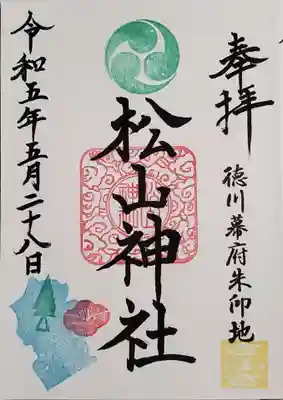 奉拝
徳川幕府朱印地
松山神社
令和五年五月二十八日